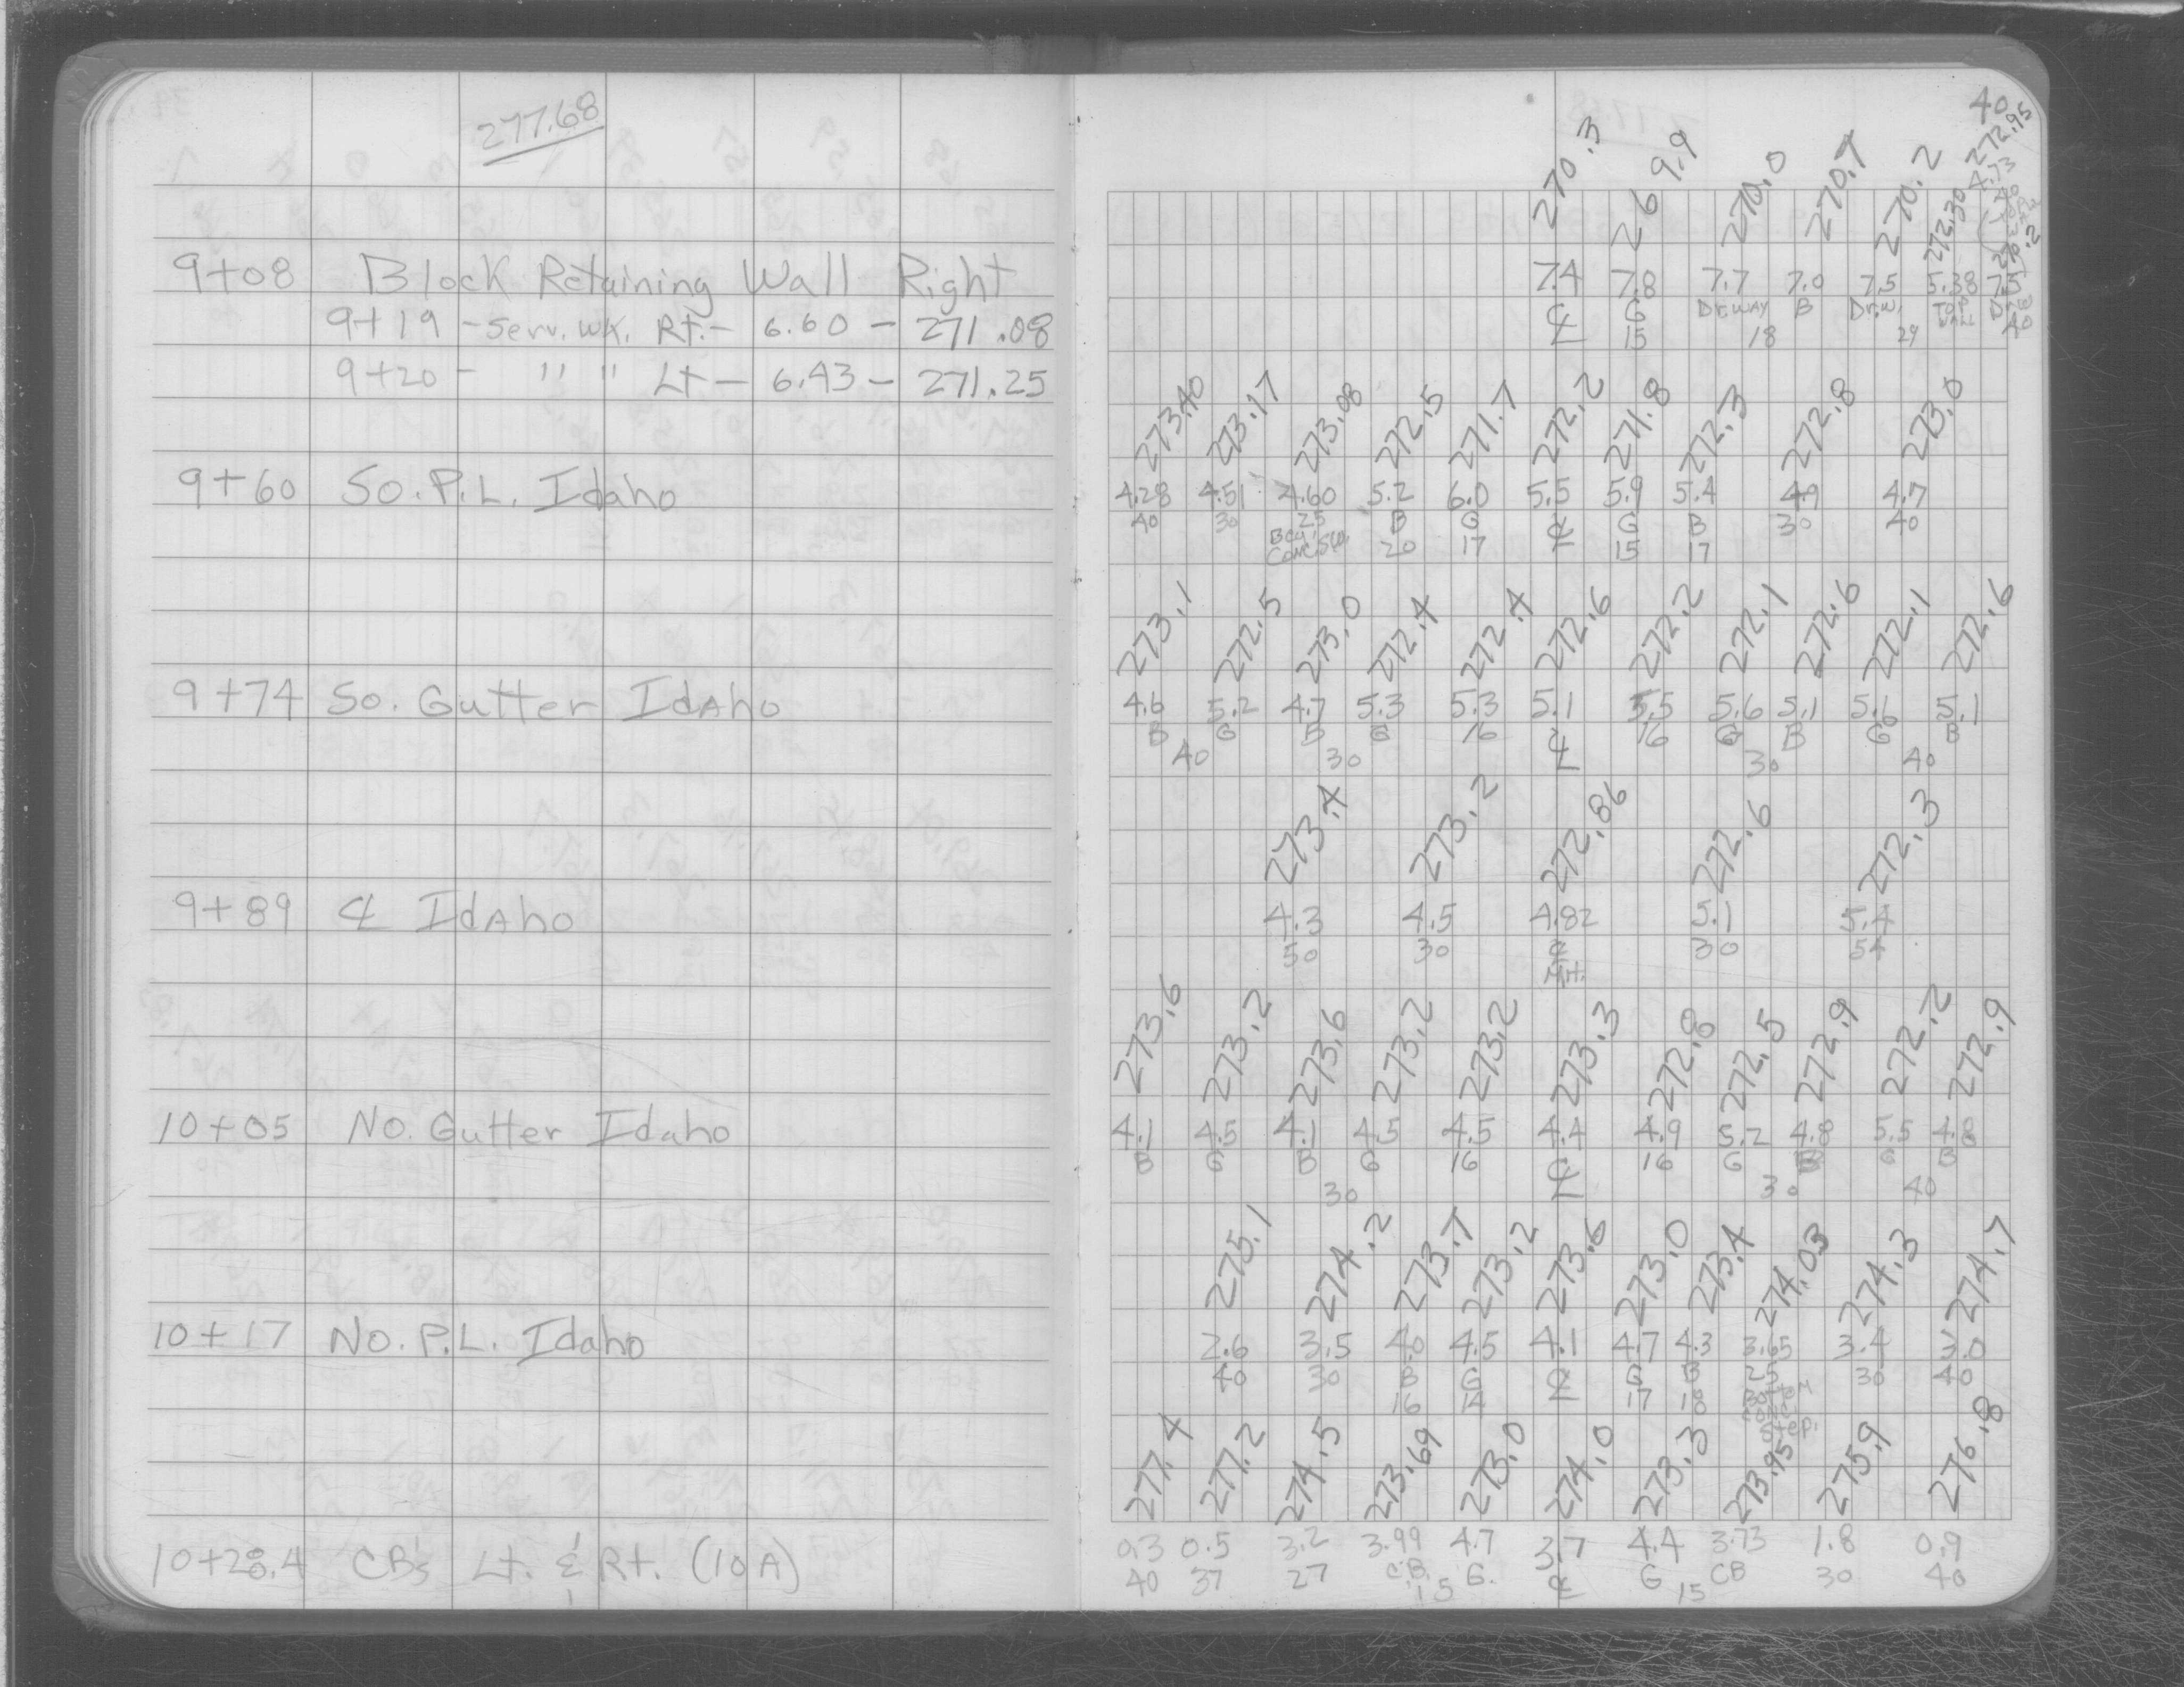 277.68
9+08 Block Retaining Wall Right
9+19 - Serv. WK. Rt. - 6.60 - 271.08
9+20 - " " Lt - 6.43 - 271.25
9+60 So. P.L. Idaho
9+74 So. Gutter IdAho
9+89 ℄ IdAho
10+05 No. Gutter Idaho
10+17 No. P.L. Idaho
10+28.4 CB's Lt. & Rt. (10A)
40
270.3 269.9 270.0 270.7 270.2 272.30 272.95
4.73
7.4 7.8 7.7 7.0 7.5 5.38 7.5
℄ G Dr.way B Dr.w. TOP WALL
15 18 29 40
273.40 273.17 273.08 272.5 271.7 272.2 271.8 272.3 272.8 273.0
4.28 4.51 4.60 5.2 6.0 5.5 5.9 5.4 4.9 4.7
40 30 25 B G ℄ G B 30 40
Beg. Conc. SW. 20 17 15 17
273.1 272.5 273.0 272.4 272.4 272.6 272.2 272.1 272.6 272.1 272.6
4.6 5.2 4.7 5.3 5.3 5.1 5.5 5.6 5.1 5.1 5.1
B G B G 16 ℄ 16 G B G B
40 30 30 40
273.4 273.2 272.86 272.6 272.3
4.3 4.5 4.82 5.1 5.4
50 30 ℄ 30 54
M.H.
273.6 273.2 273.6 273.2 273.2 273.3 272.8 272.5 272.9 272.2 272.9
4.1 4.5 4.1 4.5 4.5 4.4 4.9 5.2 4.8 5.5 4.8
B G B G 16 ℄ 16 G B G B
30 30 40
275.1 274.2 273.7 273.2 273.6 273.0 273.4 274.03 274.3 274.7
2.6 3.5 4.0 4.5 4.1 4.7 4.3 3.65 3.4 3.0
40 30 B G ℄ G B 25 30 40
16 14 17 18 Bottom
Step.
277.4 277.2 274.5 273.69 273.0 274.0 273.3 273.95 275.9 276.8
0.3 0.5 3.2 3.99 4.7 3.7 4.4 3.73 1.8 0.9
40 37 27 C.B. G. ℄ G CB 30 40
15 15